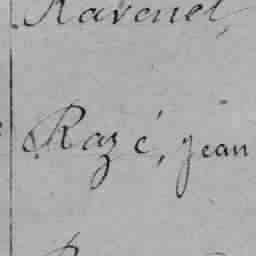 Ravenel,
Razé, jean